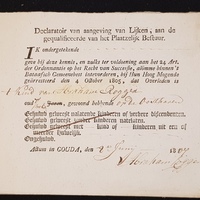 Declaratoir van aangeving van Lijken, aan de
gequalificeerde van het Plaatzelijk Bestuur.
IK ondergetekende
geev bij deze kennis, en zulks ter voldoening aan het 24 Art.
der Ordonnantie op het Recht van Successie, alomme binnen 't
Bataafsch Gemeenebest intevorderen, bij Hun Hoog Mogende
gearresteerd den 4 October 1805, dat Overleden is
't Kind van Abraham
oud Jaaren, gewoond hebbende op de
Gehuwd geweest nalatende kinderen of verdere descendenten.
Gehuwd geweest zonder kinderen natelaten.
Gehuwd geweest met kind of kinderen uit een of
Ongehuwd overleden.
Actum in GOUDA, den 2 Juny 18
Abraham